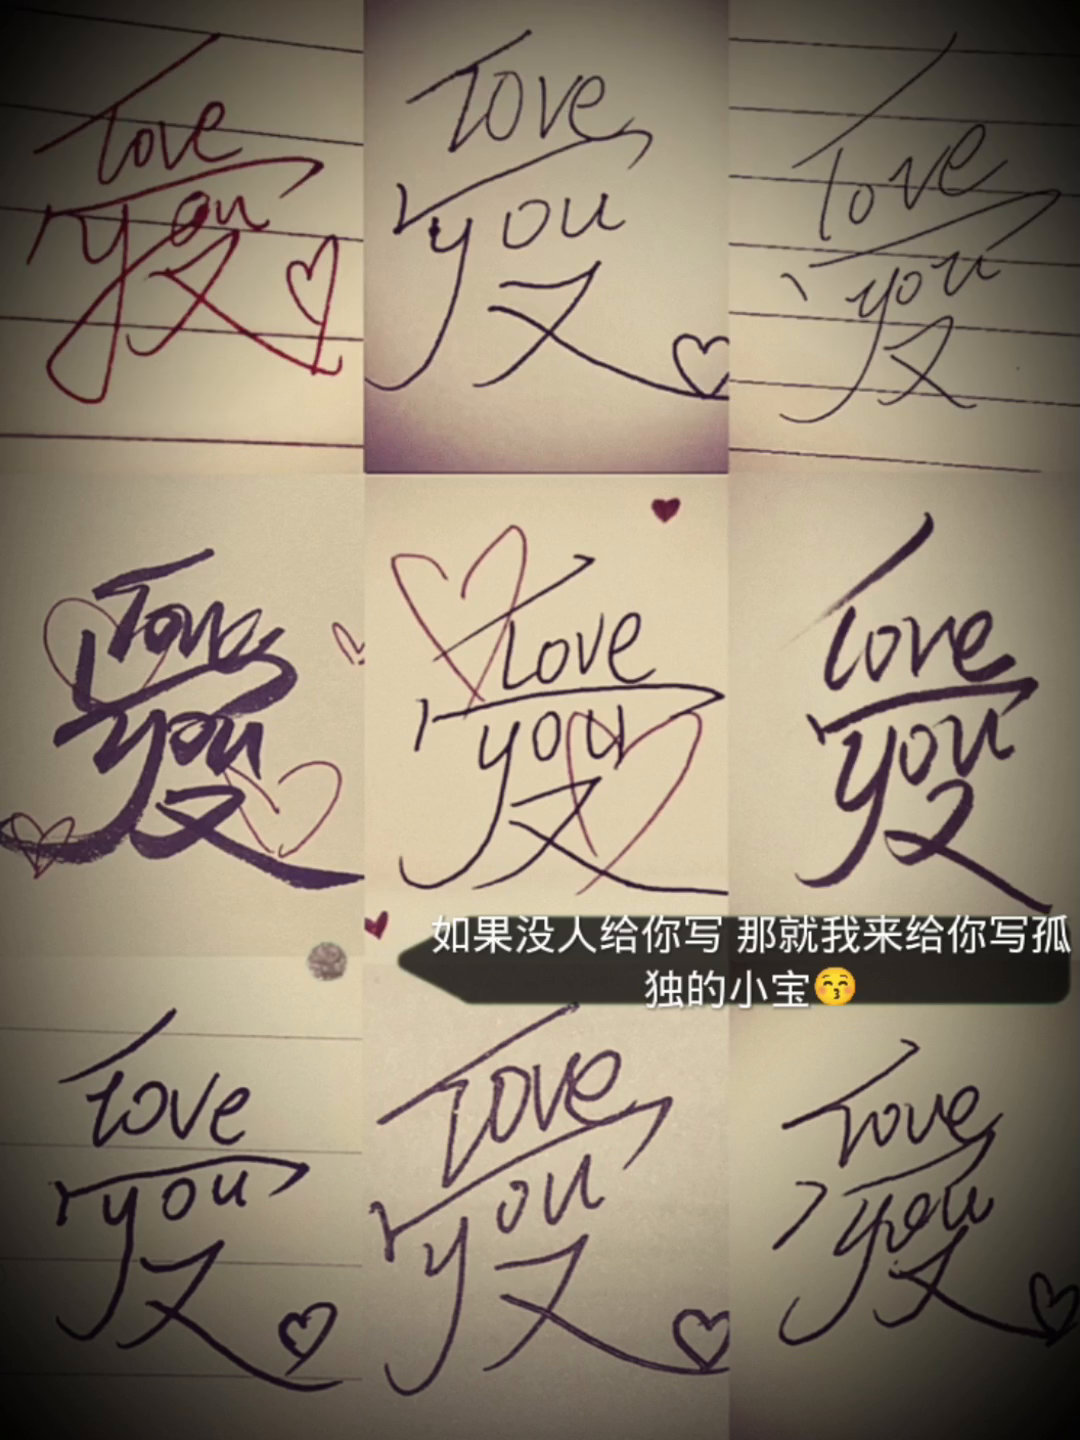 love
you
又
love
you
又
love
you
又
love
you
又
love
you
又
love
you
又
如果没人给你写 那就我来给你写孤
独的小宝😚
love
you
又
love
you
又
love
you
又